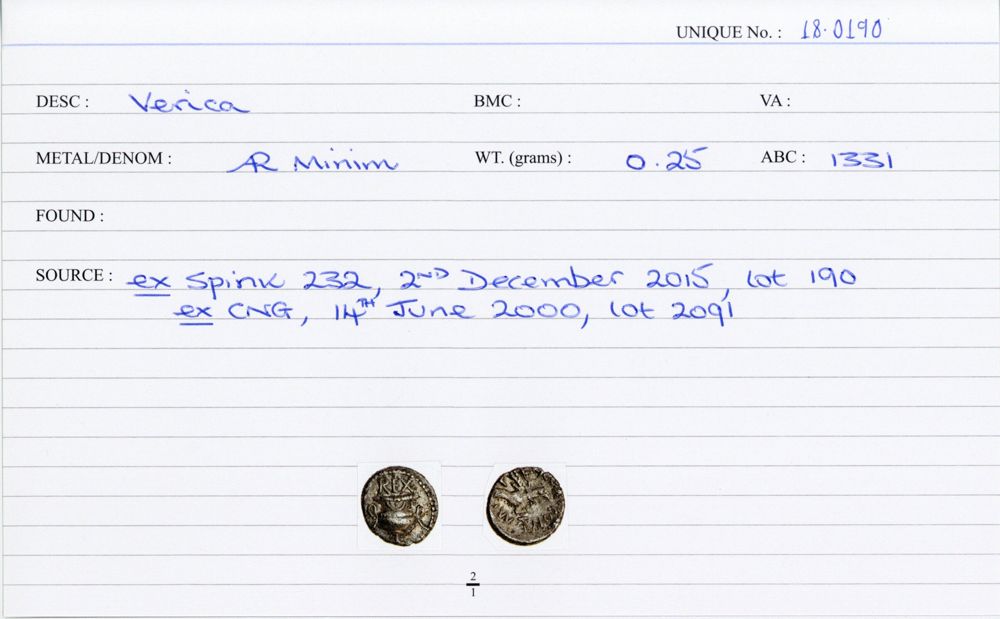 UNIQUE No. : 18.0190
DESC : Verica BMC : VA :
METAL/DENOM : AR Minim WT. (grams) : 0.25 ABC : 1331
FOUND :
SOURCE : ex Spink 232, 2ND December 2015, lot 190
ex CNG, 14TH June 2000, lot 2091
2
1